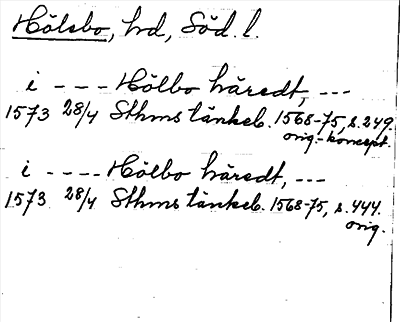 Hölebo, hd, Söd. l.
i - - - Hölbo häredt, ---
1573 28/4 Sthms tänkeb. 1568-75, s. 249.
orig.-koncept.
i - - - - Hölbo häredt, ---
1573 28/4 Sthms tänkeb. 1568-75, s. 444.
orig.